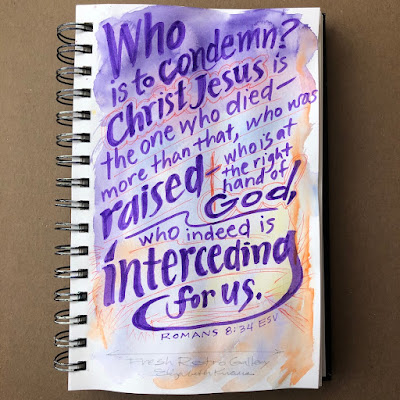 Who
is to condemn?
Christ Jesus is
the one who died—
more than that, who was
raised—
who is at
the right
hand of
God,
who indeed is
interceding
for us.
ROMANS 8:34 ESV
Fresh Retro Gallery